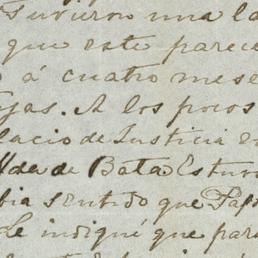 tuvieron una la
que este parece
á cuatro mese
jas. A los pocos
lacio de Justicia e
de Bata Estuv
bia sentido que Pa
Le indiqué que par